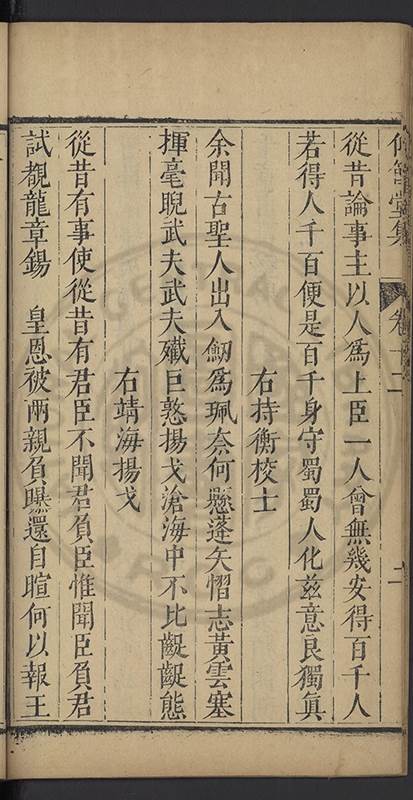 堂集 卷十二
從昔論事主以人為上臣一人曾無幾安得百千人
若得人千百便是百千身守蜀蜀人化茲意良獨真
右持衡校士
余聞古聖人出入劒為珮奈何懸蓬矢慴志黃雲塞
揮毫睨武夫武夫殲巨憝揚戈滄海中不比齷齪態
右靖海揚戈
從昔有事使從昔有君臣不聞君負臣惟聞臣負君
試覩龍章錫 皇恩被兩親負曝還自暄何以報王